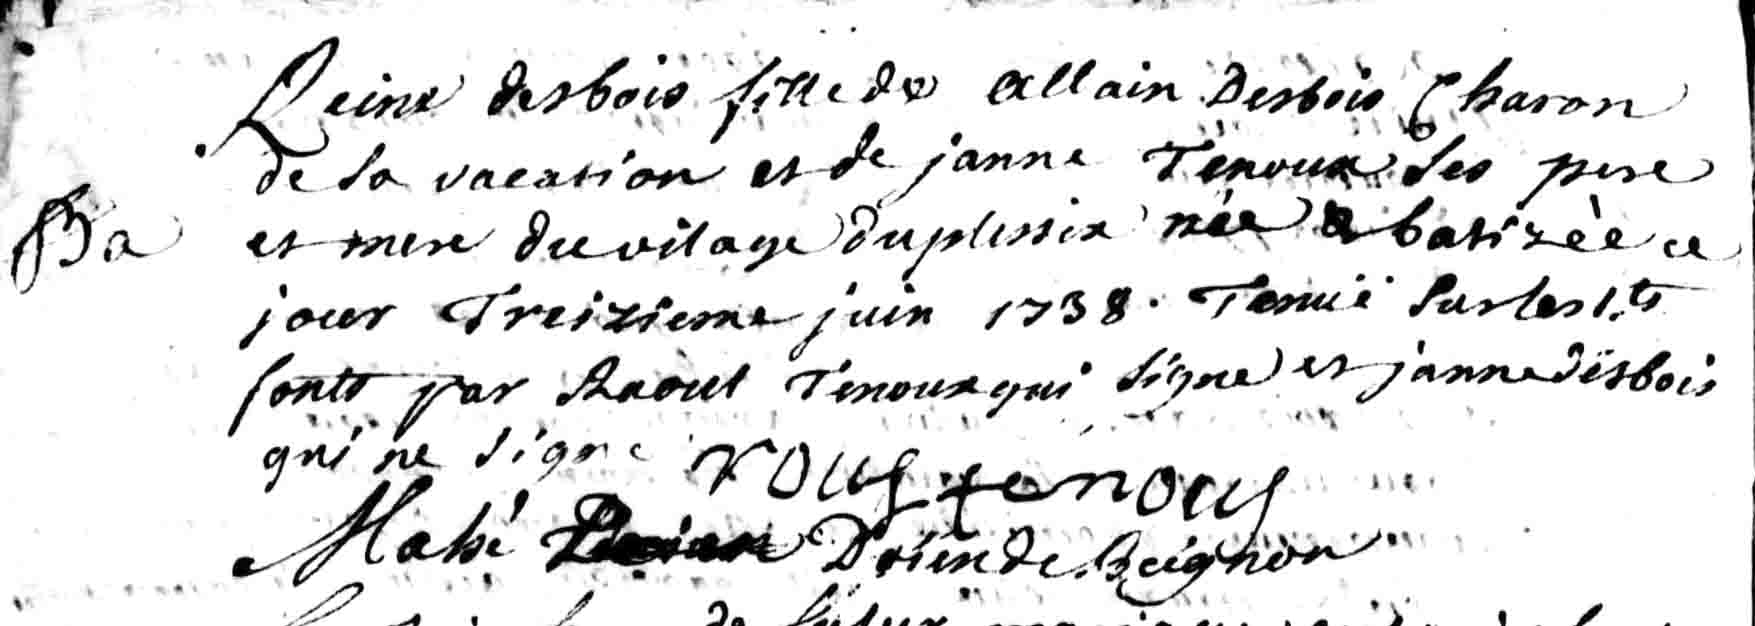 Reine desbois fille de allain Desbois Charon
de sa vacation et de janne Tenoux ses pere
Ba
et mere du vilage du plessix née & batizèe ce
jour Treizieme juin 1738. Tenuë sur les s.ts
fonts par Raoul Tenoux qui signe et janne desbois
qui ne signe roul tenoux
Mahé Prieur de Beignon